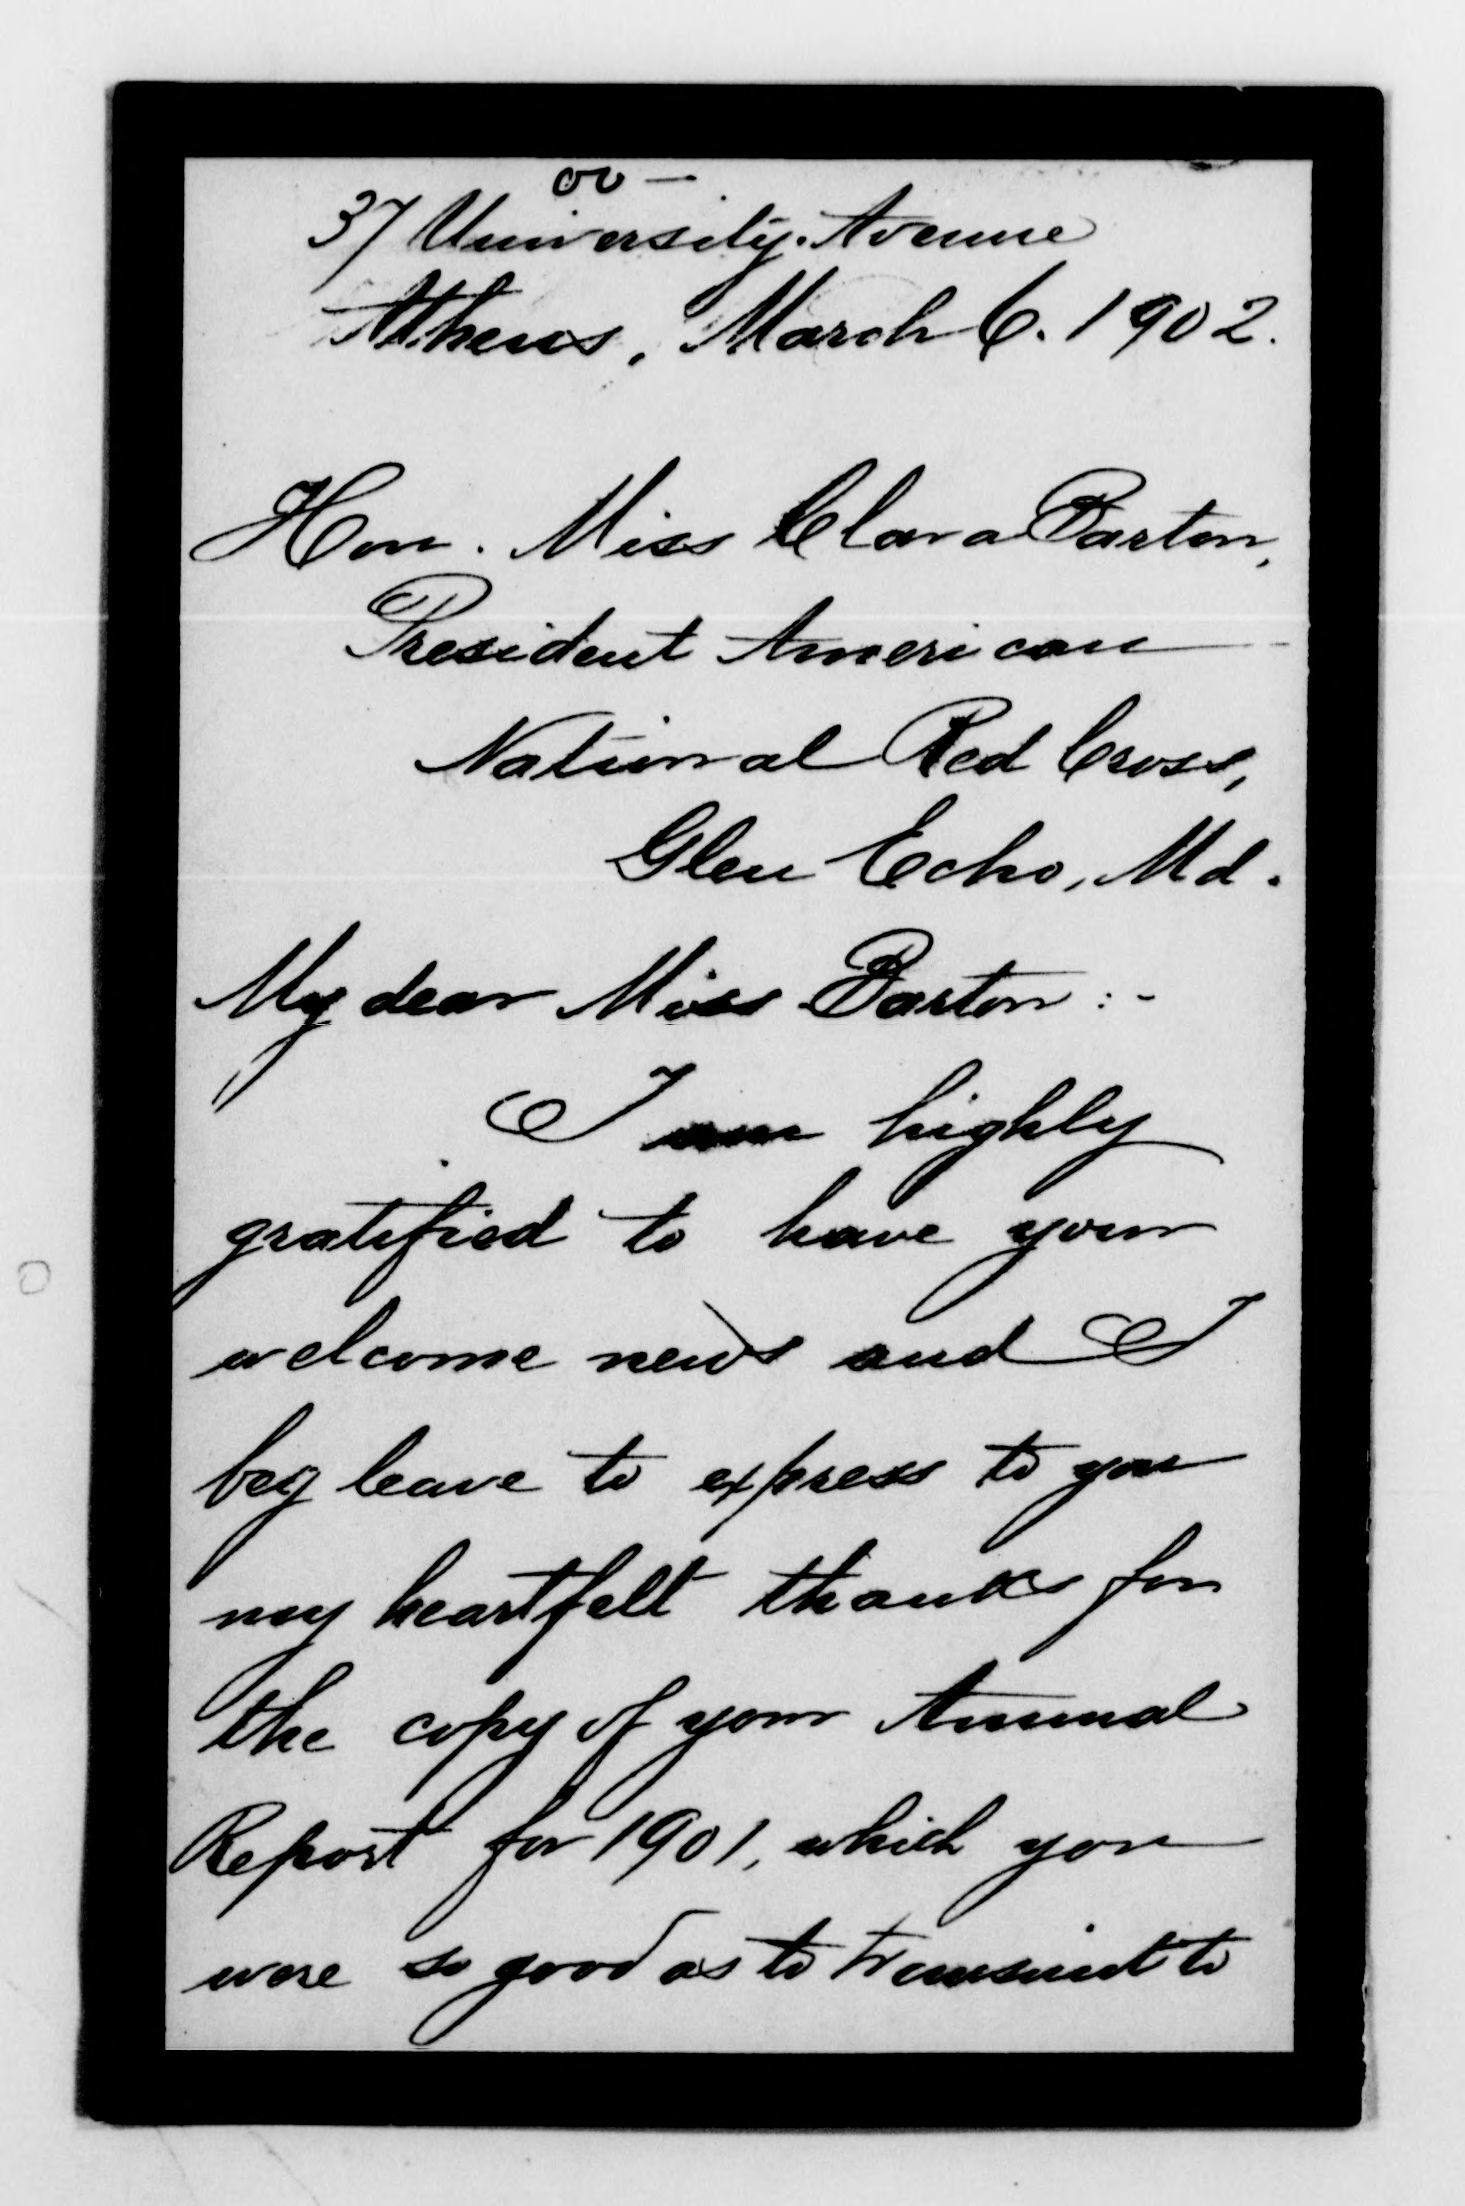 37 University Avenue
Athens, March 6. 1902.
Hon. Miss Clara Barton,
President American
National Red Cross,
Glen Echo, Md.
My dear Miss Barton :-
I am highly
gratified to have your
welcome news and I
beg leave to express to you
my heartfelt thanks for
the copy of your Annual
Report for 1901, which you
were so good as to transmit to